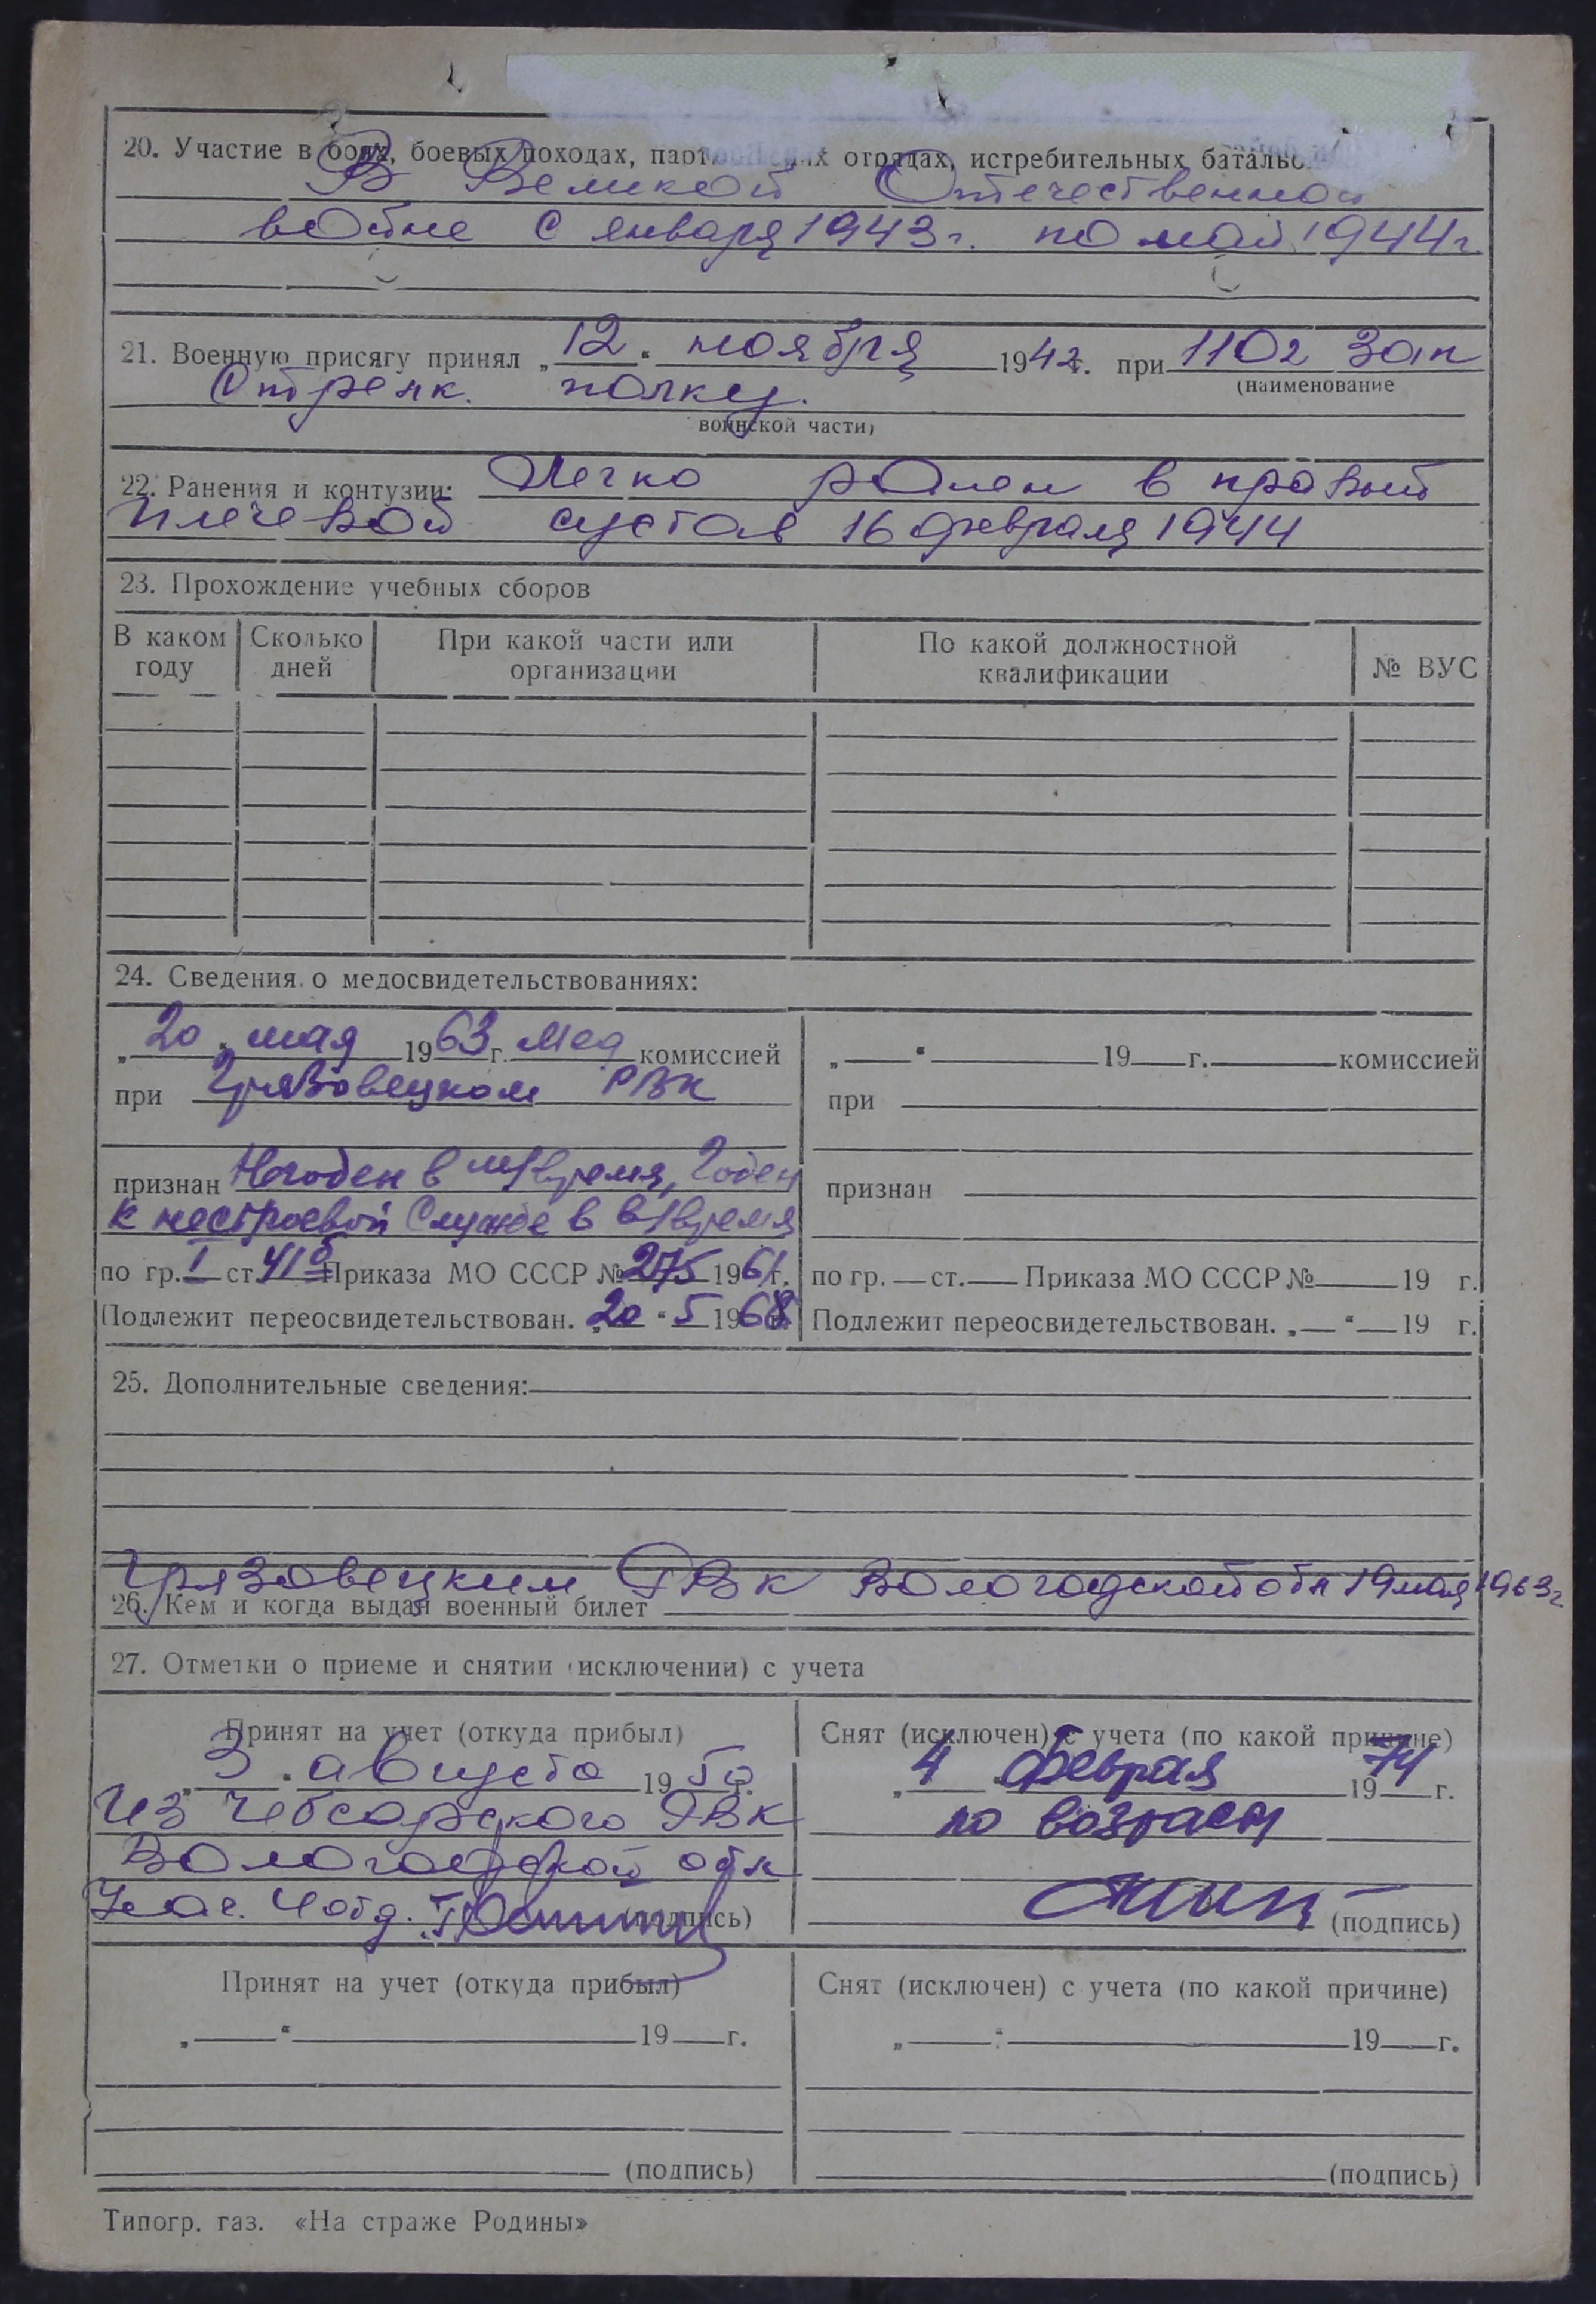 20. Участие в боях, боевых походах, отрядах, истребительных
В Великой Отечественной
войне с января 1943 г. по май 1944 г.
21. Военную присягу принял „12“ ноября 1942 г. при 1102 Зап
(наименование
Стрелк. полку.
воинской части)
22. Ранения и контузии: Легко ранен в правый
плечевой сустав 16 февраля 1944
23. Прохождение учебных сборов
В каком году
Сколько дней
При какой части или организации
По какой должностной квалификации
№ ВУС
24. Сведения о медосвидетельствованиях:
„20“ мая 1963 г. Мед комиссией
при Грязовецком РВК
признан Негоден в м/время, Годен
к нестроевой Службе в в/время
по гр. I ст. 41 б Приказа МО СССР № 275 1961 г.
Подлежит переосвидетельствован. „20“ 5 1968 г.
„ “ 19 г. комиссией
при
признан
по гр. ст. Приказа МО СССР № 19 г.
Подлежит переосвидетельствован. „ “ 19 г.
25. Дополнительные сведения:
Грязовецким РВК Вологодской обл 19 мая 1963 г
26. Кем и когда выдан военный билет
27. Отметки о приеме и снятии (исключении) с учета
Принят на учет (откуда прибыл)
„3“ августа 1950 г.
Из Чебсарского РВК
Вологодской обл
Нач. 4 отд.
(подпись)
Снят (исключен) с учета (по какой причине)
„4 февраля 1974 г.
по возрасту
(подпись)
Принят на учет (откуда прибыл)
„ “ 19 г.
(подпись)
Снят (исключен) с учета (по какой причине)
„ “ 19 г.
(подпись)
Типогр. газ. «На страже Родины»